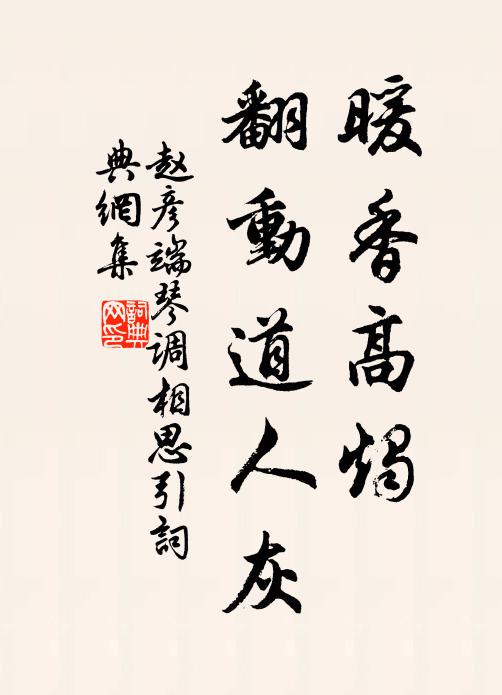 暖香高燭
翻動道人灰
赵彥端琴调相思引詞
典網集
詞典网印